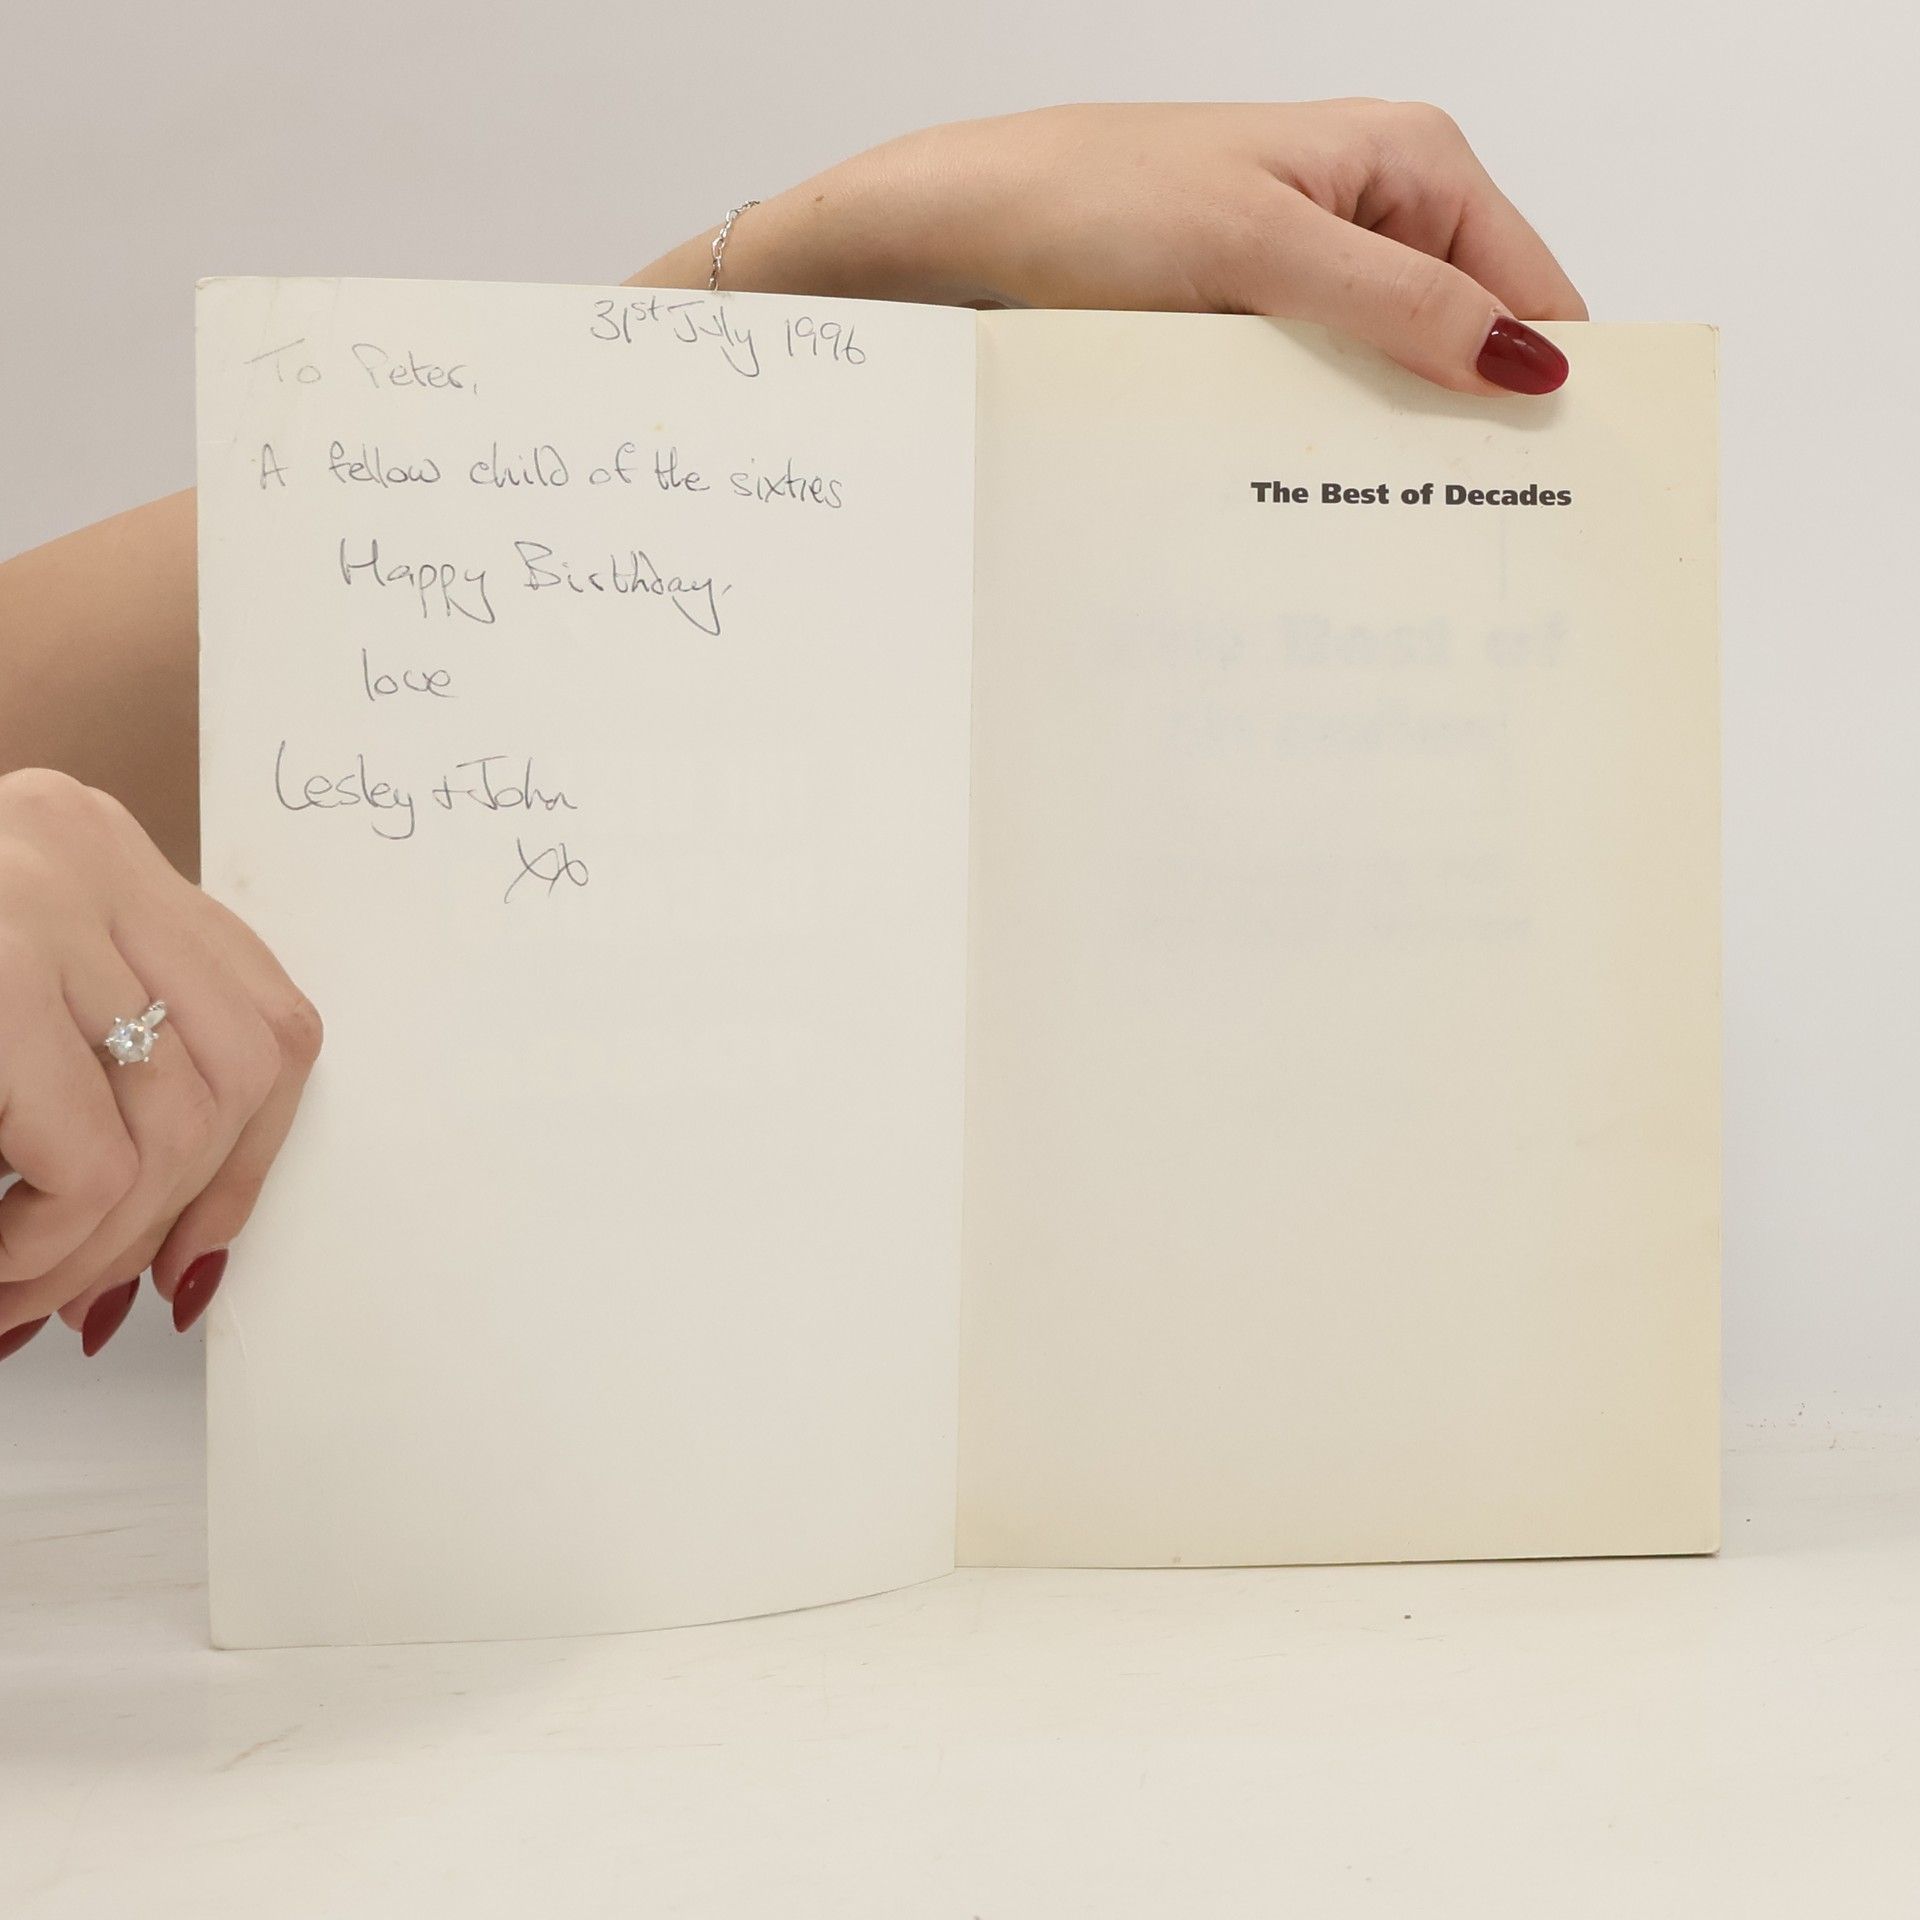 31st July 1996
To Peter,
A fellow child of the sixties
Happy Birthday,
love
Lesley + John
The Best of Decades